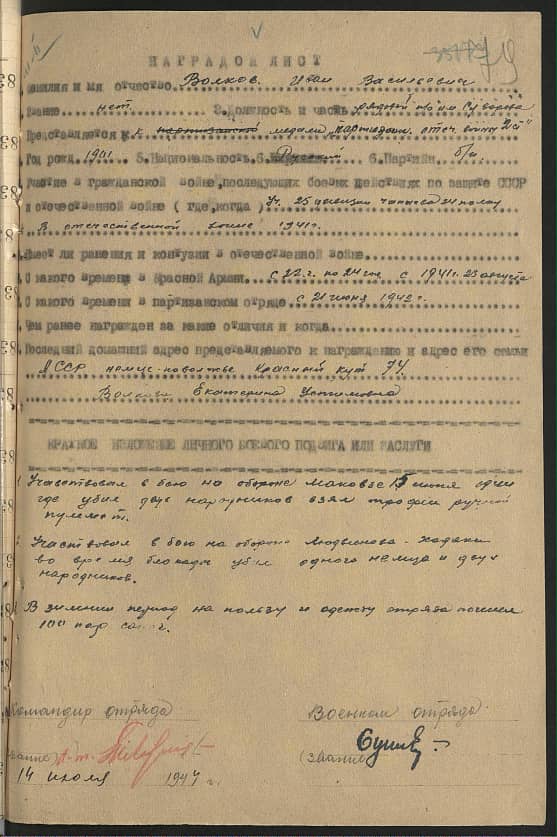 НАГРАДОЙ ЛИСТ
Фамилия и мя отчество. Волков Иван Васильевич
Звание нет 3.Должность и часть рядовой
Представляется к медали "партизан. отеч. войны
Год рожд. 1901 5.Национальность. Русский 6.Партийн. б/п.
Участие в гражданской войне,последующих боевых действиях по защите СССР
и отечественной войне ( где,когда ) 25 дивизии 24 полку
В отечественной войне 1941г.
Имеет ли ранения и контузии в отечественной войне.
С какого времени в Красной Армии. с 22 г. по 24 год с 1941г. 25 августа
С какого времени в партизанском отряде. с 21 июня 1942 г.
Чем ранее награжден за какие отличия и когда.
Последний домашний адрес представляемого к награждению и адрес его семьи
АССР немце-поволжье Красный кут 74
Волкова Екатерина Устимовна
КРАТКОЕ ИЗЛОЖЕНИЕ ЛИЧНОГО БОЕВОГО ПОДВИГА ИЛИ ЗАСЛУГИ
Участвовал в бою на обороне 15 июня
где убил двух народников взял трофеи ручной
пулемет.
Участвовал в бою на обороне
во время блокады убил одного немца и двух
народников.
В зимний период на пользу и отряда
100 пар сапог.
Командир отряда Военком отряда
(звание) (звание)
14 июля 1944 г.